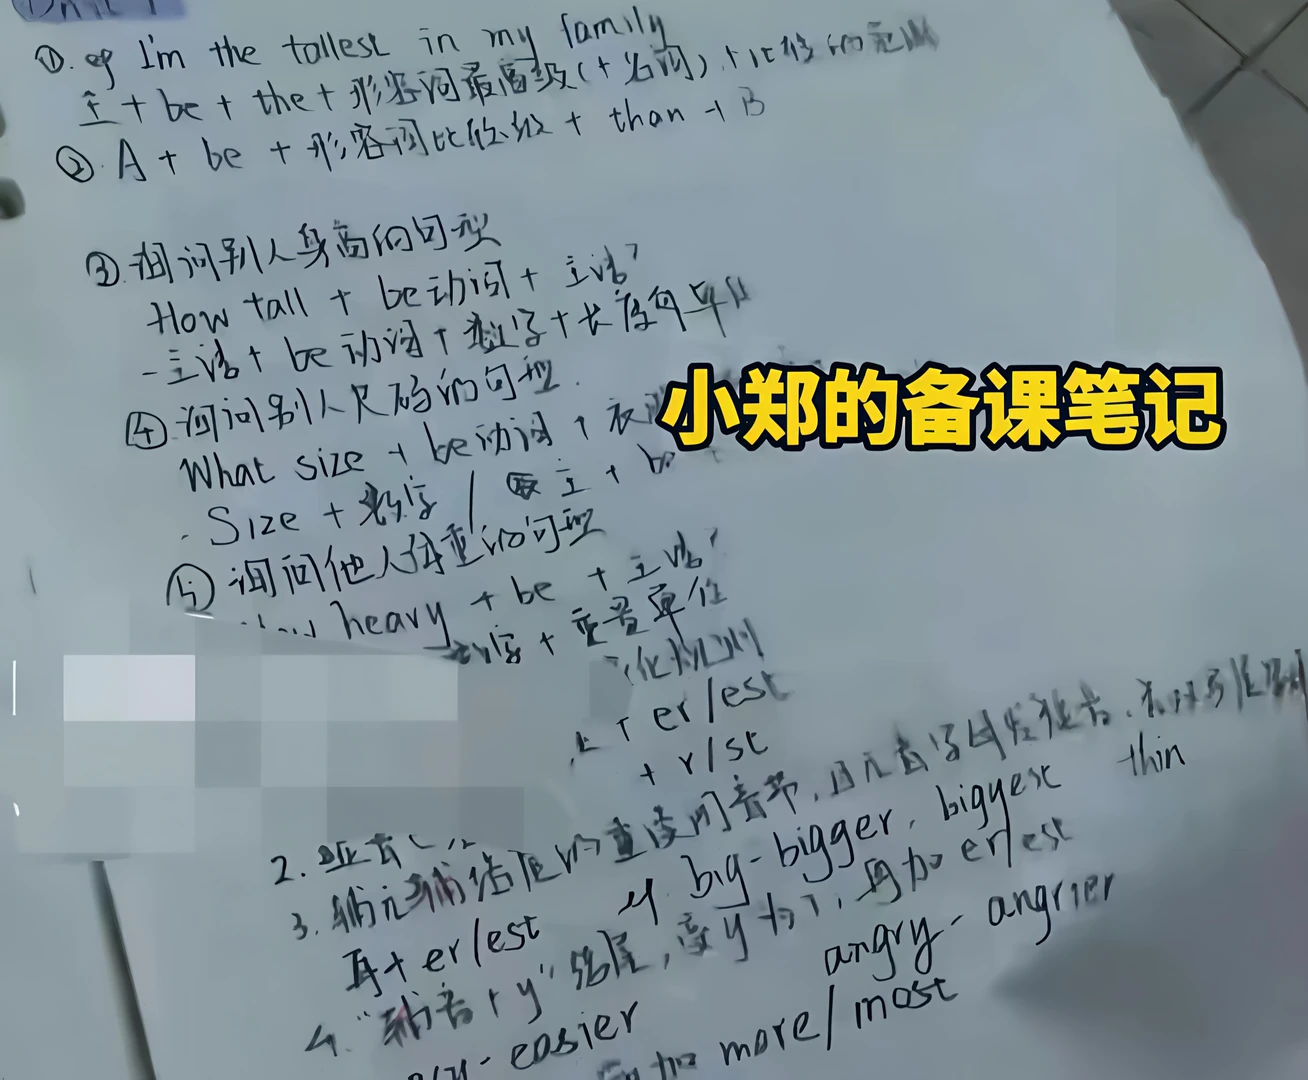 Unit 1
①. eg I'm the tallest in my family
主 + be + the + 形容词最高级(+名词) + 比较的范围
② A + be + 形容词比较级 + than + B
③ 询问别人身高的句型
How tall + be动词 + 主语?
- 主语 + be动词 + 数字 + 长度单位
④ 询问别人尺码的句型.
What size + be动词 + 衣
小郑的备课笔记
. Size + 数字 / 主 + be +
⑤ 询问他人体重的句型
heavy + be + 主语?
数字 + 重量单位
+ er/est
+ r/st
2.
3. 辅元辅结尾的重读闭音节,
再+er/est eg big-bigger, biggest thin
4. "辅音+y"结尾, 变y为i, 再加er/est
easier angry- angrier
加 more/most